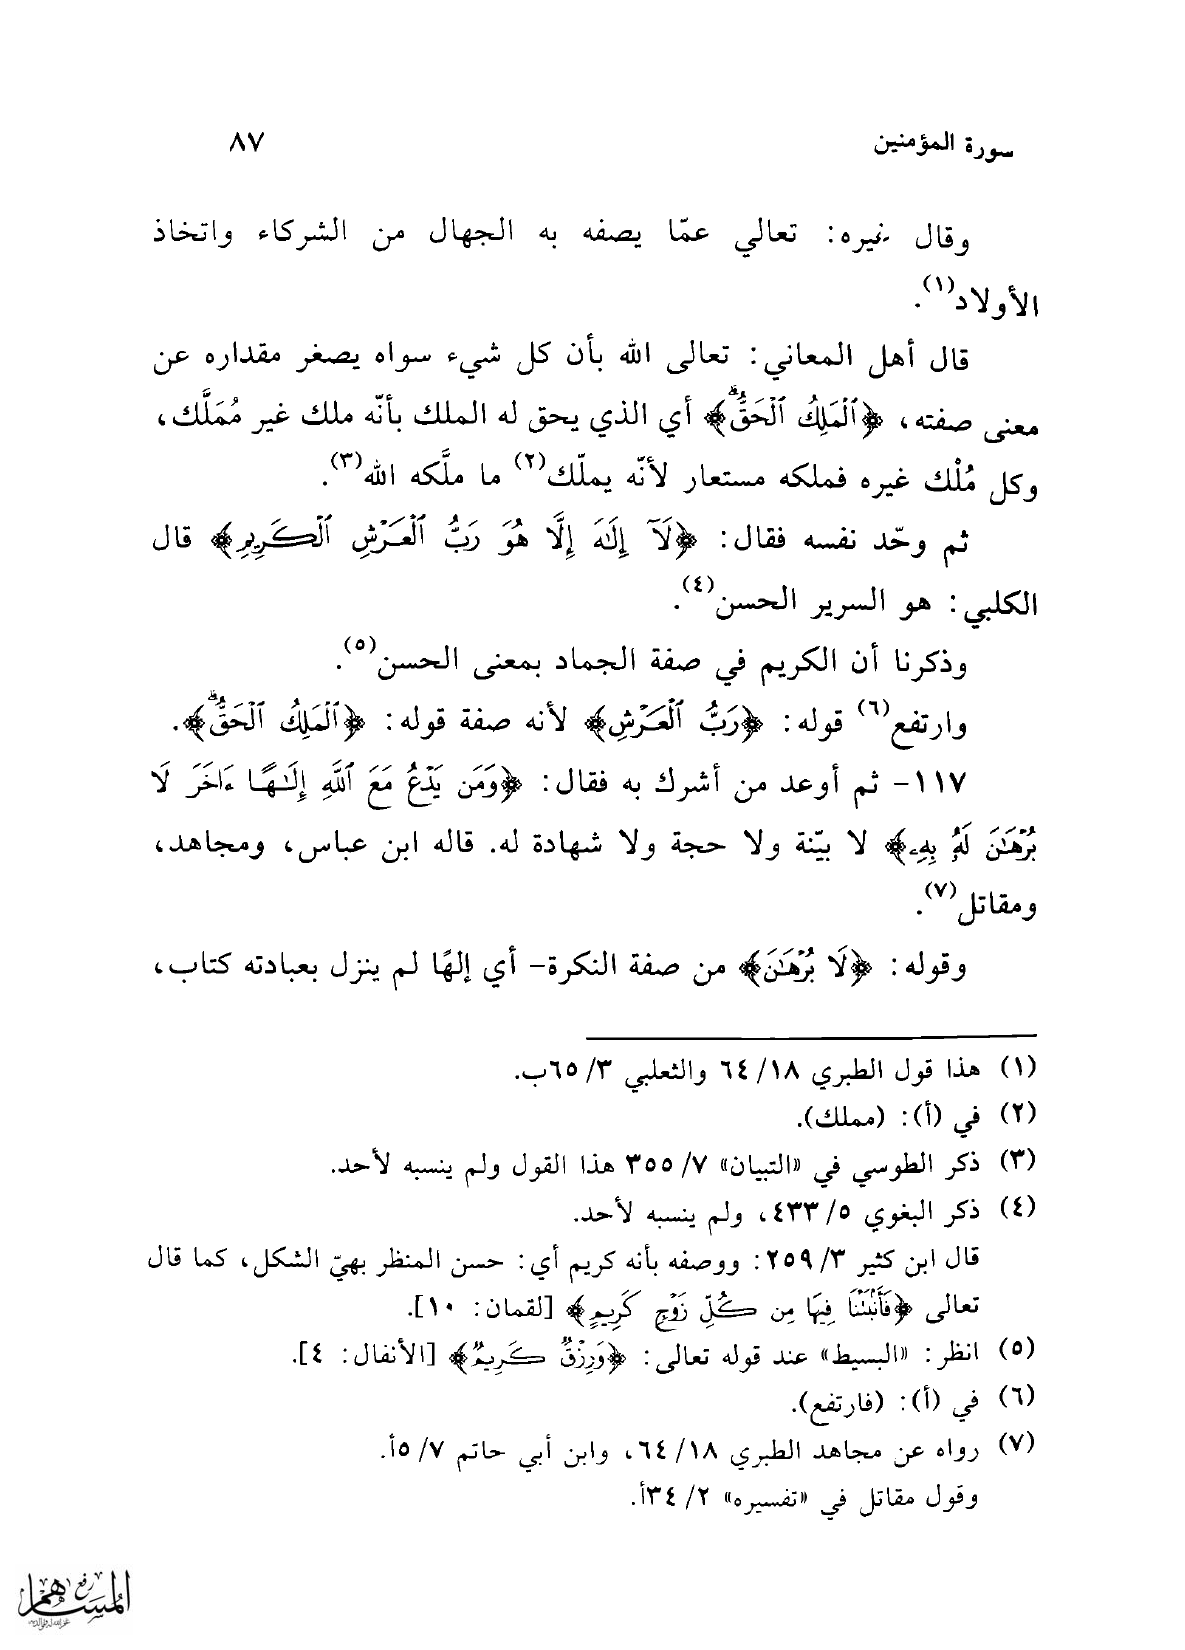 سورة المؤمنين ٨٧
وقال غيره: تعالي عمّا يصفه به الجهال من الشركاء واتخاذ
الأولاد(١).
قال أهل المعاني: تعالى الله بأن كل شيء سواه يصغر مقداره عن
معنى صفته، ﴿ٱلْمَلِكُ ٱلْحَقُّۖ﴾ أي الذي يحق له الملك بأنّه ملك غير مُمَلَّك،
وكل مُلْك غيره فملكه مستعار لأنّه يملّك(٢) ما ملَّكه الله(٣).
ثم وحّد نفسه فقال: ﴿لَآ إِلَٰهَ إِلَّا هُوَ رَبُّ ٱلْعَرْشِ ٱلْكَرِيمِ﴾ قال
الكلبي: هو السرير الحسن(٤).
وذكرنا أن الكريم في صفة الجماد بمعنى الحسن(٥).
وارتفع(٦) قوله: ﴿رَبُّ ٱلْعَرْشِ﴾ لأنه صفة قوله: ﴿ٱلْمَلِكُ ٱلْحَقُّۖ﴾.
١١٧- ثم أوعد من أشرك به فقال: ﴿وَمَن يَدْعُ مَعَ ٱللَّهِ إِلَٰهًا ءَاخَرَ لَا
بُرْهَٰنَ لَهُۥ بِهِۦ﴾ لا بيّنة ولا حجة ولا شهادة له. قاله ابن عباس، ومجاهد،
ومقاتل(٧).
وقوله: ﴿لَا بُرْهَٰنَ﴾ من صفة النكرة- أي إلهًا لم ينزل بعبادته كتاب،
(١) هذا قول الطبري ١٨/ ٦٤ والثعلبي ٣/ ٦٥ب.
(٢) في (أ): (مملك).
(٣) ذكر الطوسي في «التبيان» ٧/ ٣٥٥ هذا القول ولم ينسبه لأحد.
(٤) ذكر البغوي ٥/ ٤٣٣، ولم ينسبه لأحد.
قال ابن كثير ٣/ ٢٥٩: ووصفه بأنه كريم أي: حسن المنظر بهيّ الشكل، كما قال
تعالى ﴿فَأَنۢبَتْنَا فِيهَا مِن كُلِّ زَوْجٍ كَرِيمٍ﴾ [لقمان: ١٠].
(٥) انظر: «البسيط» عند قوله تعالى: ﴿وَرِزْقٌ كَرِيمٌ﴾ [الأنفال: ٤].
(٦) في (أ): (فارتفع).
(٧) رواه عن مجاهد الطبري ١٨/ ٦٤، وابن أبي حاتم ٧/ ٥أ.
وقول مقاتل في «تفسيره» ٢/ ٣٤أ.
رفع
المساهم